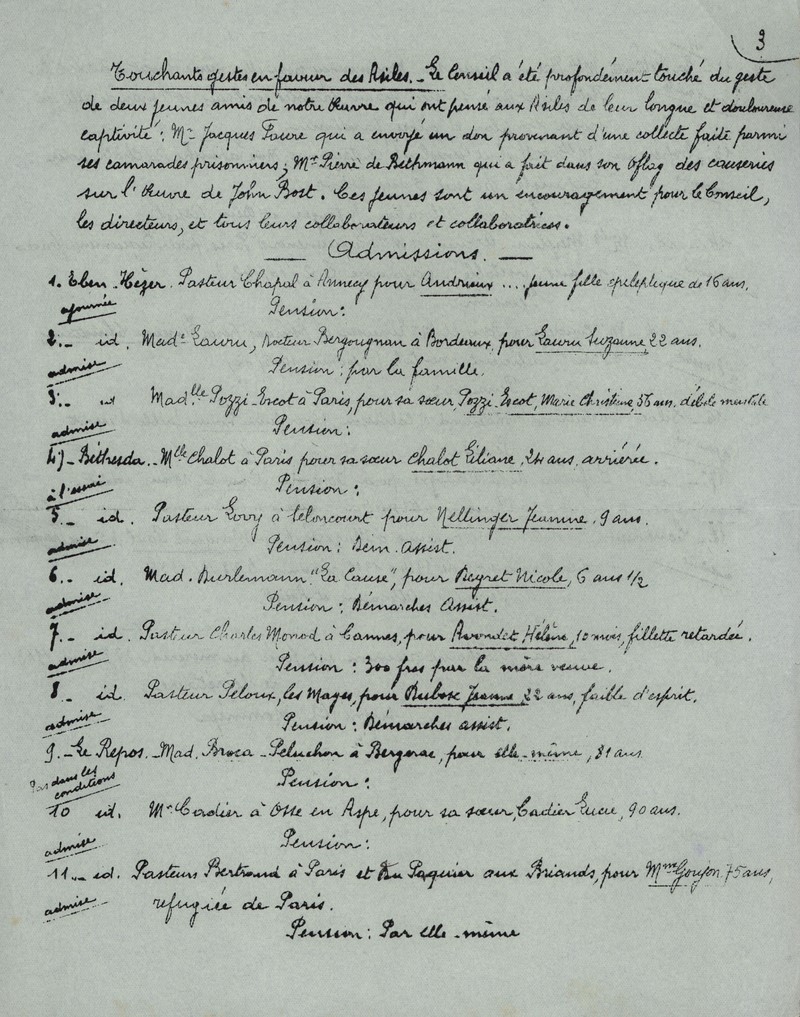 3
Touchants gestes en faveur des Asiles. - Le Conseil a été profondément touché du geste
de deux jeunes amis de notre Œuvre qui ont pensé aux Asiles de leur longue et douloureuse
captivité : Mr Jacques Faure qui a envoyé un don provenant d'une collecte faite parmi
ses camarades prisonniers ; Mr Pierre de Bethmann qui a fait dans son Oflag des causeries
sur l'Œuvre de John Bost. Ces jeunes sont un encouragement pour le Conseil,
les directeurs, et tous leurs collaborateurs et collaboratrices.
Admissions.
1. Eben-Hézer. Pasteur Chapal à Annecy pour Andrieux .... jeune fille épileptique de 16 ans.
ajournée
Pension :
2.- id. Made Lauru, Docteur Bergougnan à Bordeaux pour Lauru Suzanne, 22 ans.
admise
Pension : par la famille.
3.- id Madlle Pozzi-Escot à Paris, pour sa sœur, Pozzi-Escot, Marie Christine, 56 ans. débile mentale
admise
Pension :
4)- Béthesda. - Mlle Chalot à Paris pour sa sœur Chalot Liliane, 24 ans, arriérée.
à l'essai
Pension :
5.- id. Pasteur Lovy à Seloncourt pour Nettinger Jeanne, 9 ans.
admise
Pension : Dem. Assist.
6.- id. Mad. Burlemann "La Cause", pour Beyret Nicole, 6 ans 1/2
admise
Pension : Démarches Assist.
7.- id. Pasteur Charles Monod à Cannes, pour Avondet Hélène, 10 mois, fillette retardée.
admise
Pension : 300 frcs par la mère veuve.
8.- id. Pasteur Peloux, les Mages, pour Dubosc Jeanne, 22 ans, faible d'esprit.
admise
Pension : Démarches assist.
9.- Le Repos. - Mad. Broca-Peluchon à Bergerac, pour elle-même, 81 ans
Pas dans les conditions
Pension :
10 id. Mr Cadier à Osse en Aspe, pour sa sœur, Cadier Lucie, 90 ans.
admise
Pension :
11.- id. Pasteurs Bertrand à Paris et Du Paquier aux Briands, pour Mme Goujon 75 ans,
admise
réfugiée de Paris.
Pension : Par elle-même